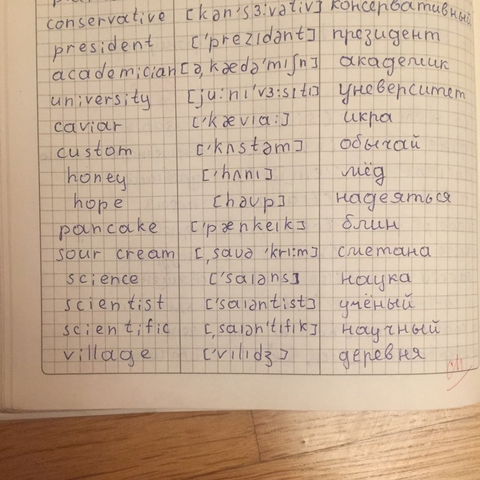 conservative [kən's3:vətiv] консервативный
president ['prezıdənt] президент
academician [ə,kædə'mıʃn] академик
university [ju:nı'v3:sıtı] уневерситет
caviar ['kævıa:] икра
custom ['kʌstəm] обычай
honey ['hʌnı] мёд
hope [həup] надеяться
pancake ['pænkeık] блин
sour cream [,sauə 'kri:m] сметана
science ['saıəns] наука
scientist ['saıəntist] учёный
scientific [,saıən'tıfık] научный
village ['vılıdʒ] деревня